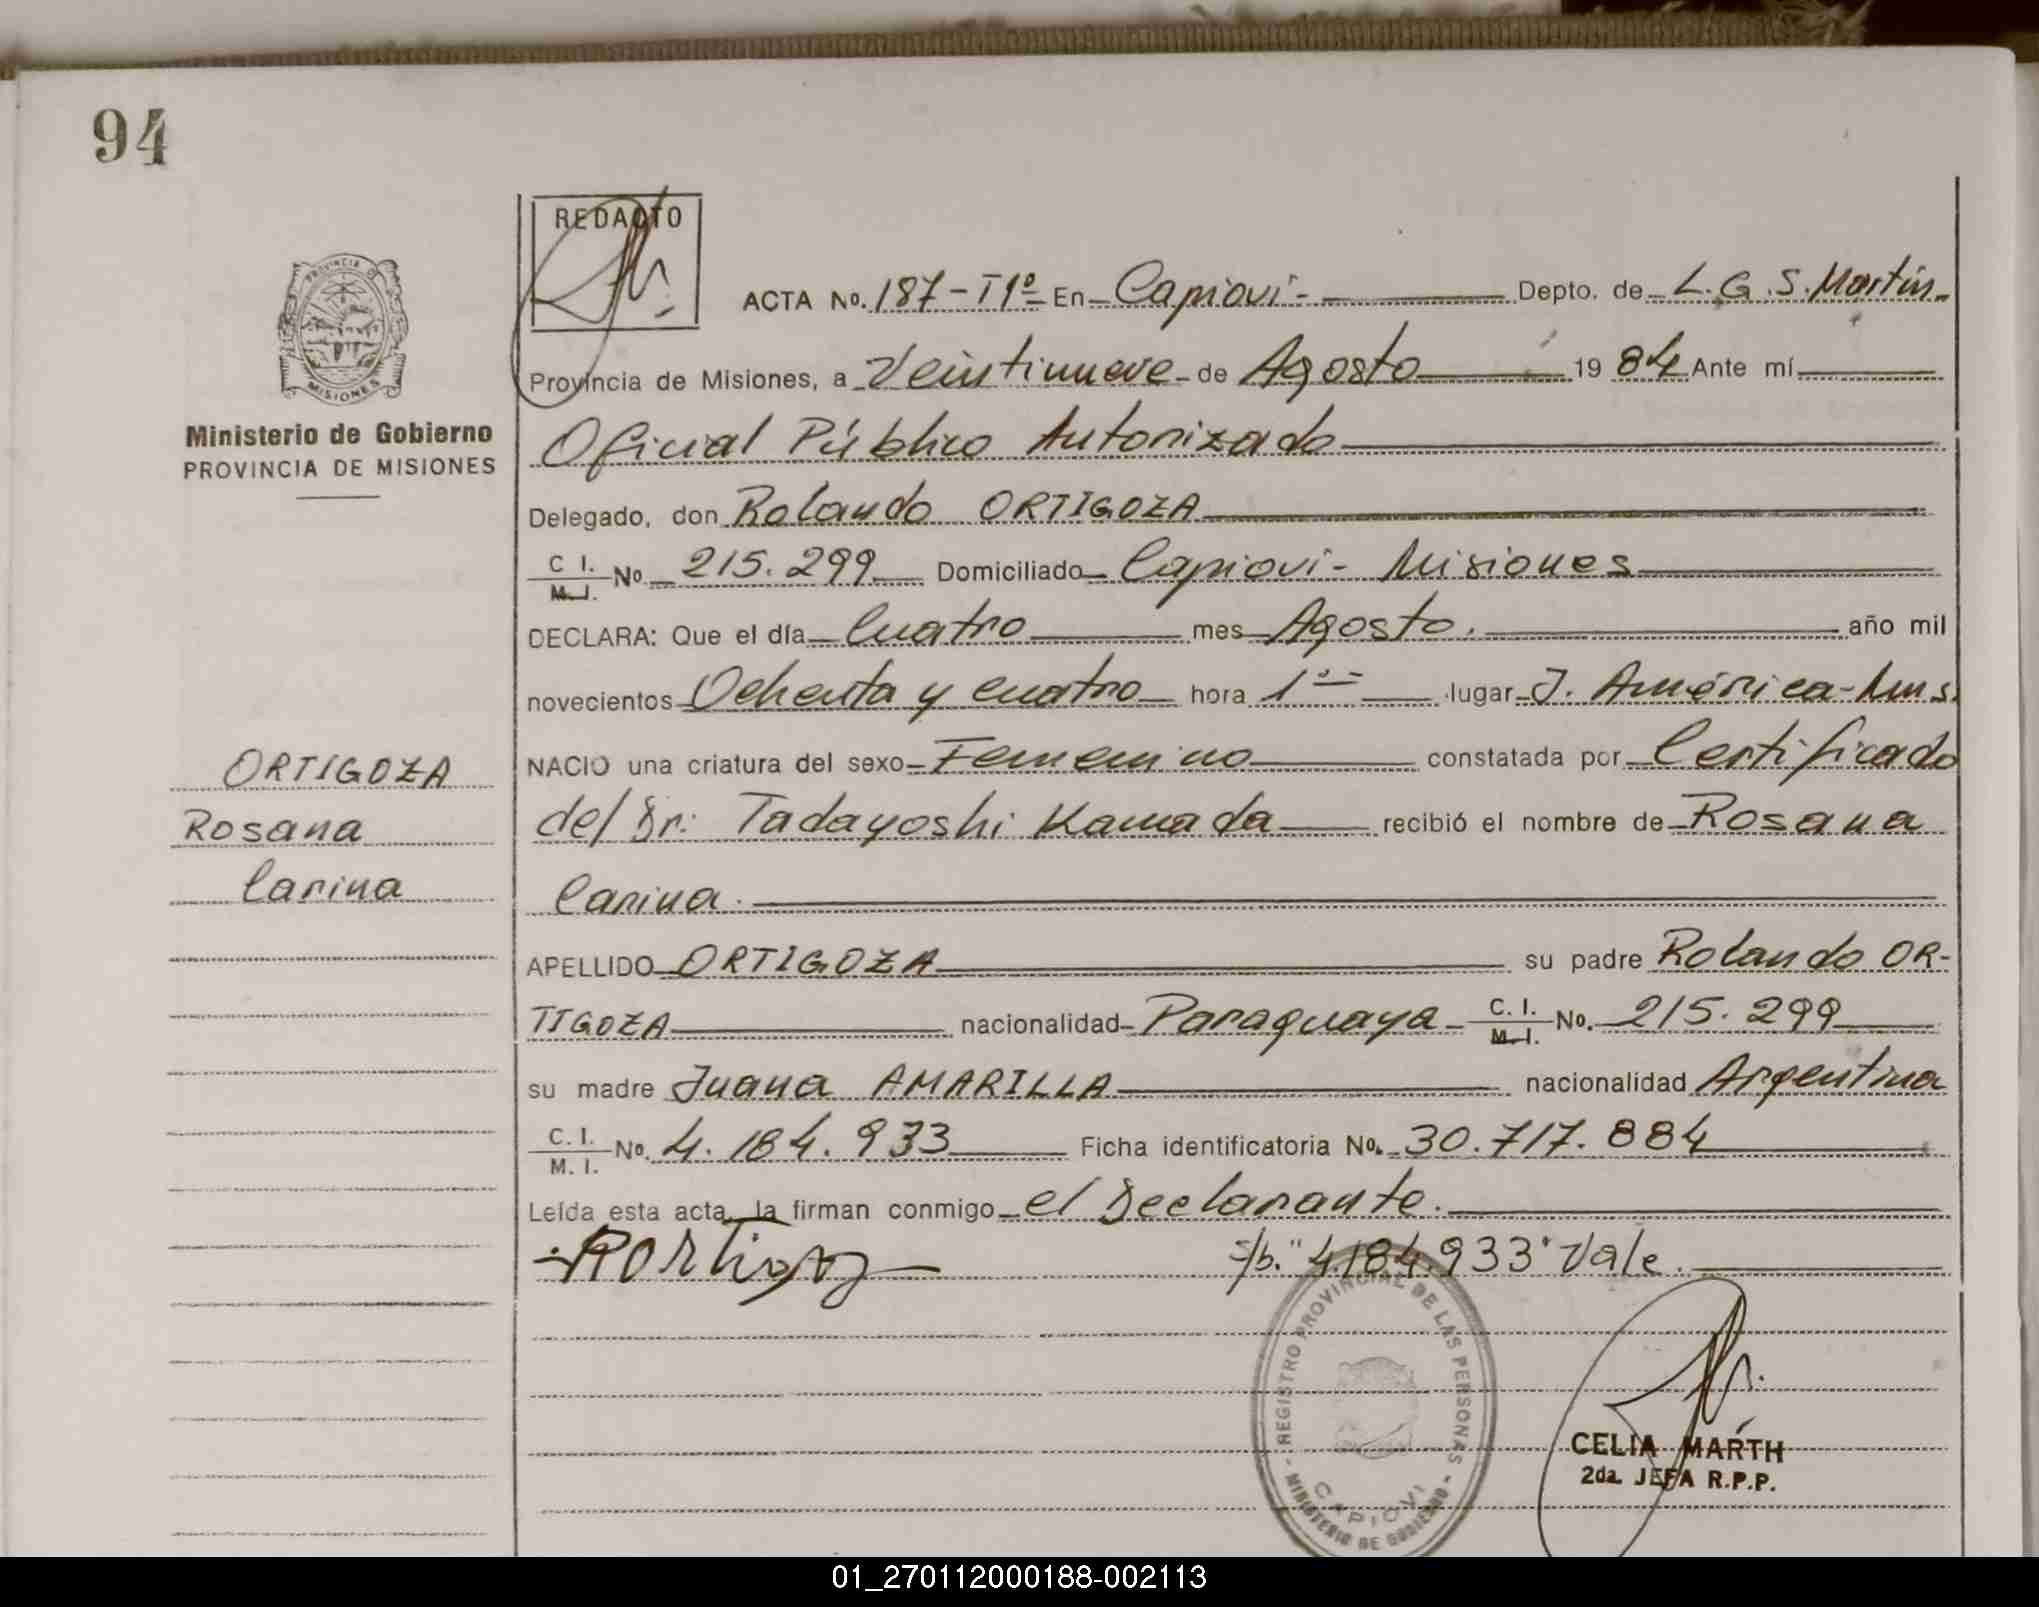 94
REDACTO
PROVINCIA D
MISIONES
Ministerio de Gobierno
PROVINCIA DE MISIONES
ACTA No. 187-T1º En Capioví- Depto. de L.G.S. Martín-
Provincia de Misiones, a Veintinueve de Agosto 1984 Ante mí
Oficial Público Autorizado
Delegado, don Rolando ORTIGOZA
C. I. / M. I. No 215.299 Domiciliado Capioví- Misiones
DECLARA: Que el día Cuatro mes Agosto. año mil
novecientos Ochenta y cuatro hora 1º lugar J. América-Mns.
NACIO una criatura del sexo Femenino constatada por Certificado
del Dr. Tadayoshi Kamada recibió el nombre de Rosana
Carina.
APELLIDO ORTIGOZA su padre Rolando OR-
TIGOZA nacionalidad Paraguaya C. I. / M. I. No. 215.299
su madre Juana AMARILLA nacionalidad Argentina
C. I. / M. I. No. 4.184.933 Ficha identificatoria No. 30.717.884
Leída esta acta, la firman conmigo el Declarante.
ROrtigoza s/b. "4.184.933" Vale.
ORTIGOZA
Rosana
Carina
REGISTRO PROVINCIAL DE LAS PERSONAS
CAPIOVI
MINISTERIO DE GOBIERNO
CELIA MARTH
2da. JEFA R.P.P.
01_270112000188-002113